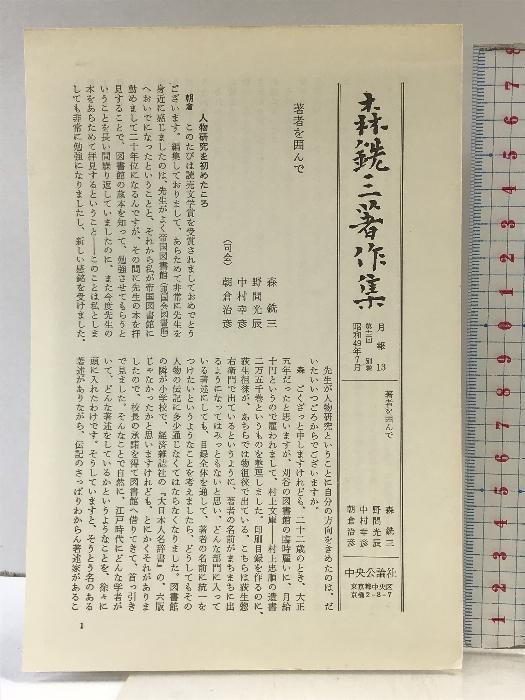 森銑三著作集
月報13
第十二回 別巻
昭和49年7月
著者を囲んで
森銑三
野間光辰
中村幸彦
朝倉治彦
中央公論社
東京都中央区
京橋2-8-7
著者を囲んで
森銑三
野間光辰
中村幸彦
(司会) 朝倉治彦
人物研究を初めたころ
朝倉 このたびは読売文学賞を受賞されましておめでとう
ございます。編集しておりまして、あらためて非常に先生を
身近に感じましたのは、先生がよく帝国図書館(
へおいでになったということと、それから私が帝国図書館に
勤めまして二十年位になるんですが、その間に先生の本を拝
見することで、図書館の蔵本を知って、勉強させてもらうと
いうことを長い間繰り返していましたのに、また今度先生の
本をあらためて拝見するということ――このことは私としま
しても非常に勉強になりましたし、新しい感銘を受けました。
先生が人物研究ということに自分の方向をきめたのは、だ
いたいいつごろからでございますか。
森 ごくざっと申しますけれども、二十二歳のとき、大正
五年だったと思いますが、刈谷の図書館の臨時雇いに、月給
十円というので雇われまして、村上文庫――村上忠順の遺書
二万五千巻というものを整理しました。印刷目録を作るのに、
荻生徂徠が、あちらでは物徂徠で出ている、こちらは荻生惣
右衛門で出ているというように、著者の名前がまちまちに出
るようになってはみっともないと思い、どんな部門に入って
いる著述にしても、目録全体を通して、著者の名前に統一を
つけたいというようなことを考えましたら、どうしてもその
人物の伝記に多少通じなくてはならなくなりました。図書館
の隣が小学校で、経済雑誌社の『大日本人名辞書』の、六版
じゃなかったかと思いますけれども、とにかくそれがありま
したので、校長の承諾を得て図書館へ借りてきて、首っ引き
で見ました。そんなことで自然に、江戸時代にどんな学者が
いて、どんな著述をしているかというようなことを、徐々に
頭に入れたわけです。そうしていますと、そうとう名のある
著述がありながら、伝記のさっぱりわからん著述家があるこ
1
8
7
6
5
4
3
2
1
1
2
3
4
5
6
7
8